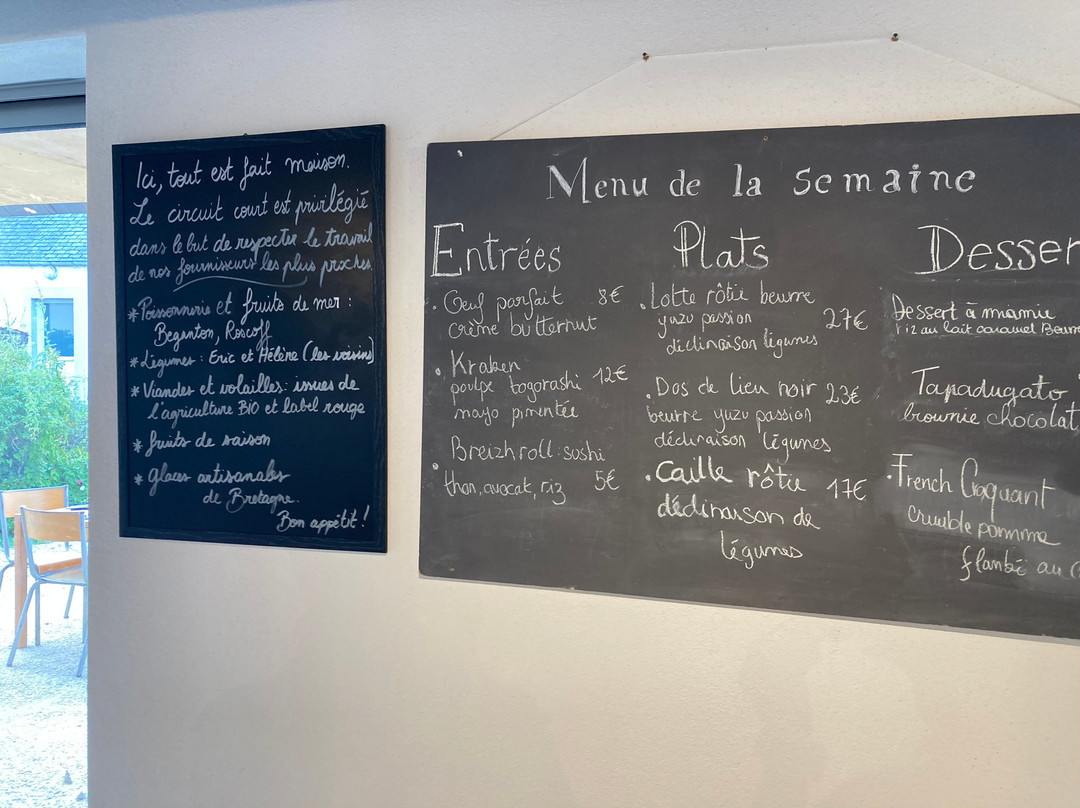 Ici, tout est fait maison.
Le circuit court est privilégié
dans le but de respecter le travail
de nos fournisseurs les plus proches.
* Poissonnerie et fruits de mer :
Beganton, Roscoff
* Légumes : Eric et Hélène (les voisins)
* Viandes et volailles : issues de
l'agriculture BIO et label rouge
* fruits de saison
* glaces artisanales
de Bretagne.
Bon appétit !
Menu de la semaine
Entrées
. Oeuf parfait 8€
crème butternut
. Kraken
poulpe togorashi 12€
mayo pimentée
. Breizh roll : sushi
thon, avocat, riz 5€
Plats
. Lotte rôtie beurre
yuzu passion 27€
déclinaison légumes
. Dos de lieu noir 23€
beurre yuzu passion
déclinaison légumes
. Caille rôtie 17€
déclinaison de
légumes
Desser
Dessert à mamie
riz au lait caramel Beurre
Tapadugato
brownie chocolat,
. French Craquant
crumble pomme
flambé au